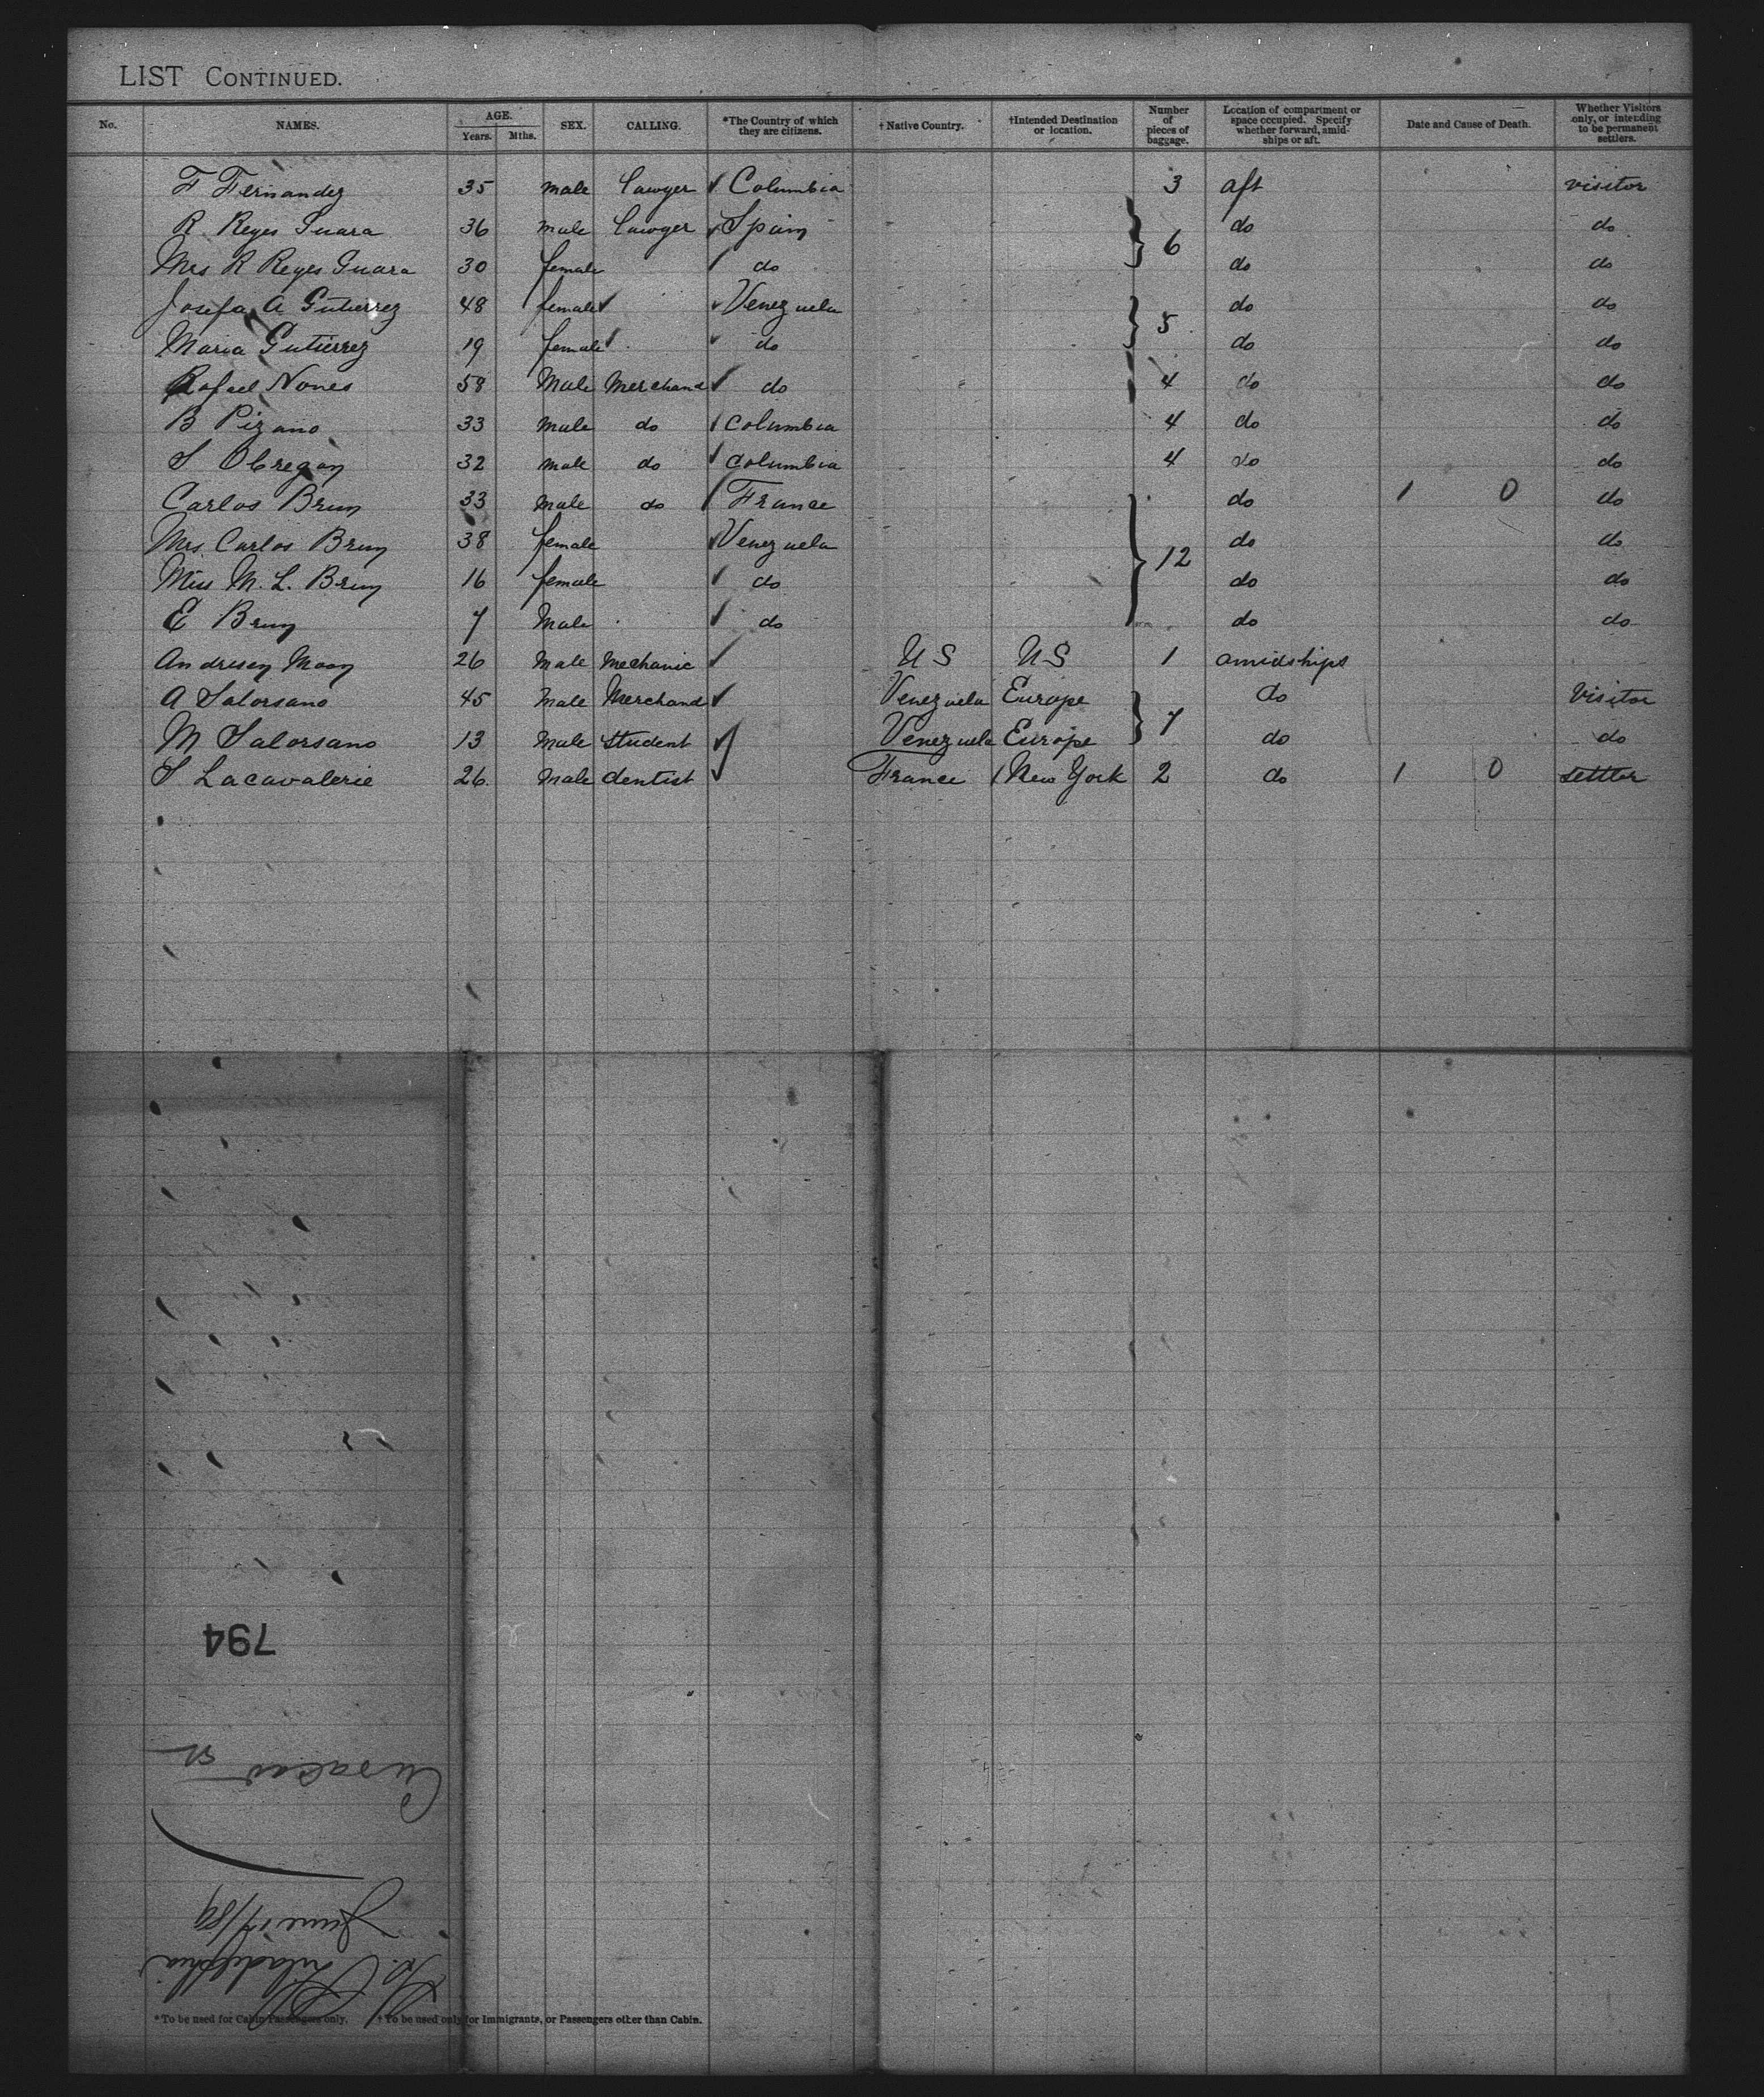 LIST CONTINUED.
No. NAMES. AGE. Years. Mths. SEX. CALLING. *The Country of which they are citizens. †Native Country. †Intended Destination or location. Number of pieces of baggage. Location of compartment or space occupied. Specify whether forward, amidships or aft. Date and Cause of Death. Whether Visitors only, or intending to be permanent settlers.
F Fernandez 35 male Lawyer Columbia 3 aft visitor
R. Reyes Guara 36 male Lawyer Spain 6 do do
Mrs R Reyes Guara 30 female do do do
Josefa A Gutierrez 48 female Venezuela 5 do do
Maria Gutierrez 19 female do do do
Rafael Nones 58 Male Merchand do 4 do do
B Pizano 33 male do Columbia 4 do do
S Obregon 32 male do Columbia 4 do do
Carlos Brun 33 male do France do 1 0 do
Mrs Carlos Brun 38 female Venezuela 12 do do
Miss M. L. Brun 16 female do do do
E Brun 7 Male do do do
Andresen Moon 26 male Mechanic US US 1 amidships
A Salorsano 45 Male Merchand Venezuela Europe 7 do Visitor
M Salorsano 13 Male Student Venezuela Europe do do
S Lacavalerie 26 Male dentist France New York 2 do 1 0 settler
794
Curacao
June 17/89
Philadelphia
*To be used for Cabin Passengers only. †To be used only for Immigrants, or Passengers other than Cabin.